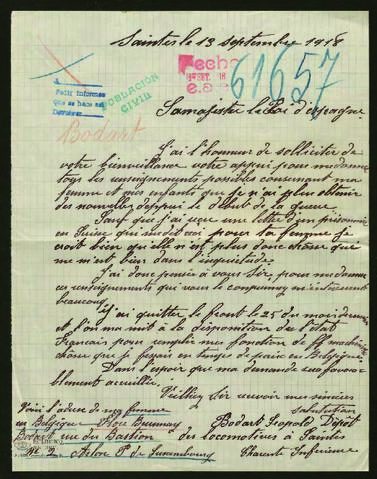 Saintes le 13 septembre 1918
Fecha
SET. 18
61657
Pedir informes
que se hace est
POBLACIÓN
CIVIL
Bodart
Sa majester le Roi d'espagne
J'ai l'honneur de solliciter de
votre bienveillance votre appui pour me donner
tous les renseignements possibles consernant ma
femme et mes enfants que je n'ai plus obtenir
des nouvelles depuis le début de la guerre.
Sauf que j'ai reçue une lettre d'un prisonnier
en Suisse qui me dit ceci pour ta femme je
croit bien qu'elle n'est plus donc chose que
me met bien dans l'inquietude.
J'ai donc pensée à vous Sir, pour me donner
ces renseignements qui vous le comprenez m'intéressent
beaucoup.
J'ai quitter le front le 25 du mois de mai
et l'on ma mit à la disposition de l'état
Français pour remplir mes fonction de ff machiniste
chose que je fesais en temps de paix en Belgique.
Dans l'espoir que ma demande sera favora-
blement accueillie.
Veillez Sir avoir mes sincères
salutation
Voici l'adresse de ma femme
en Belgique
Bodart rue du Bastion
No 2 Arlon P. de Luxembourg
Bodart Léopold Dépôt
des locomotives à Saintes
Charente Inférieure